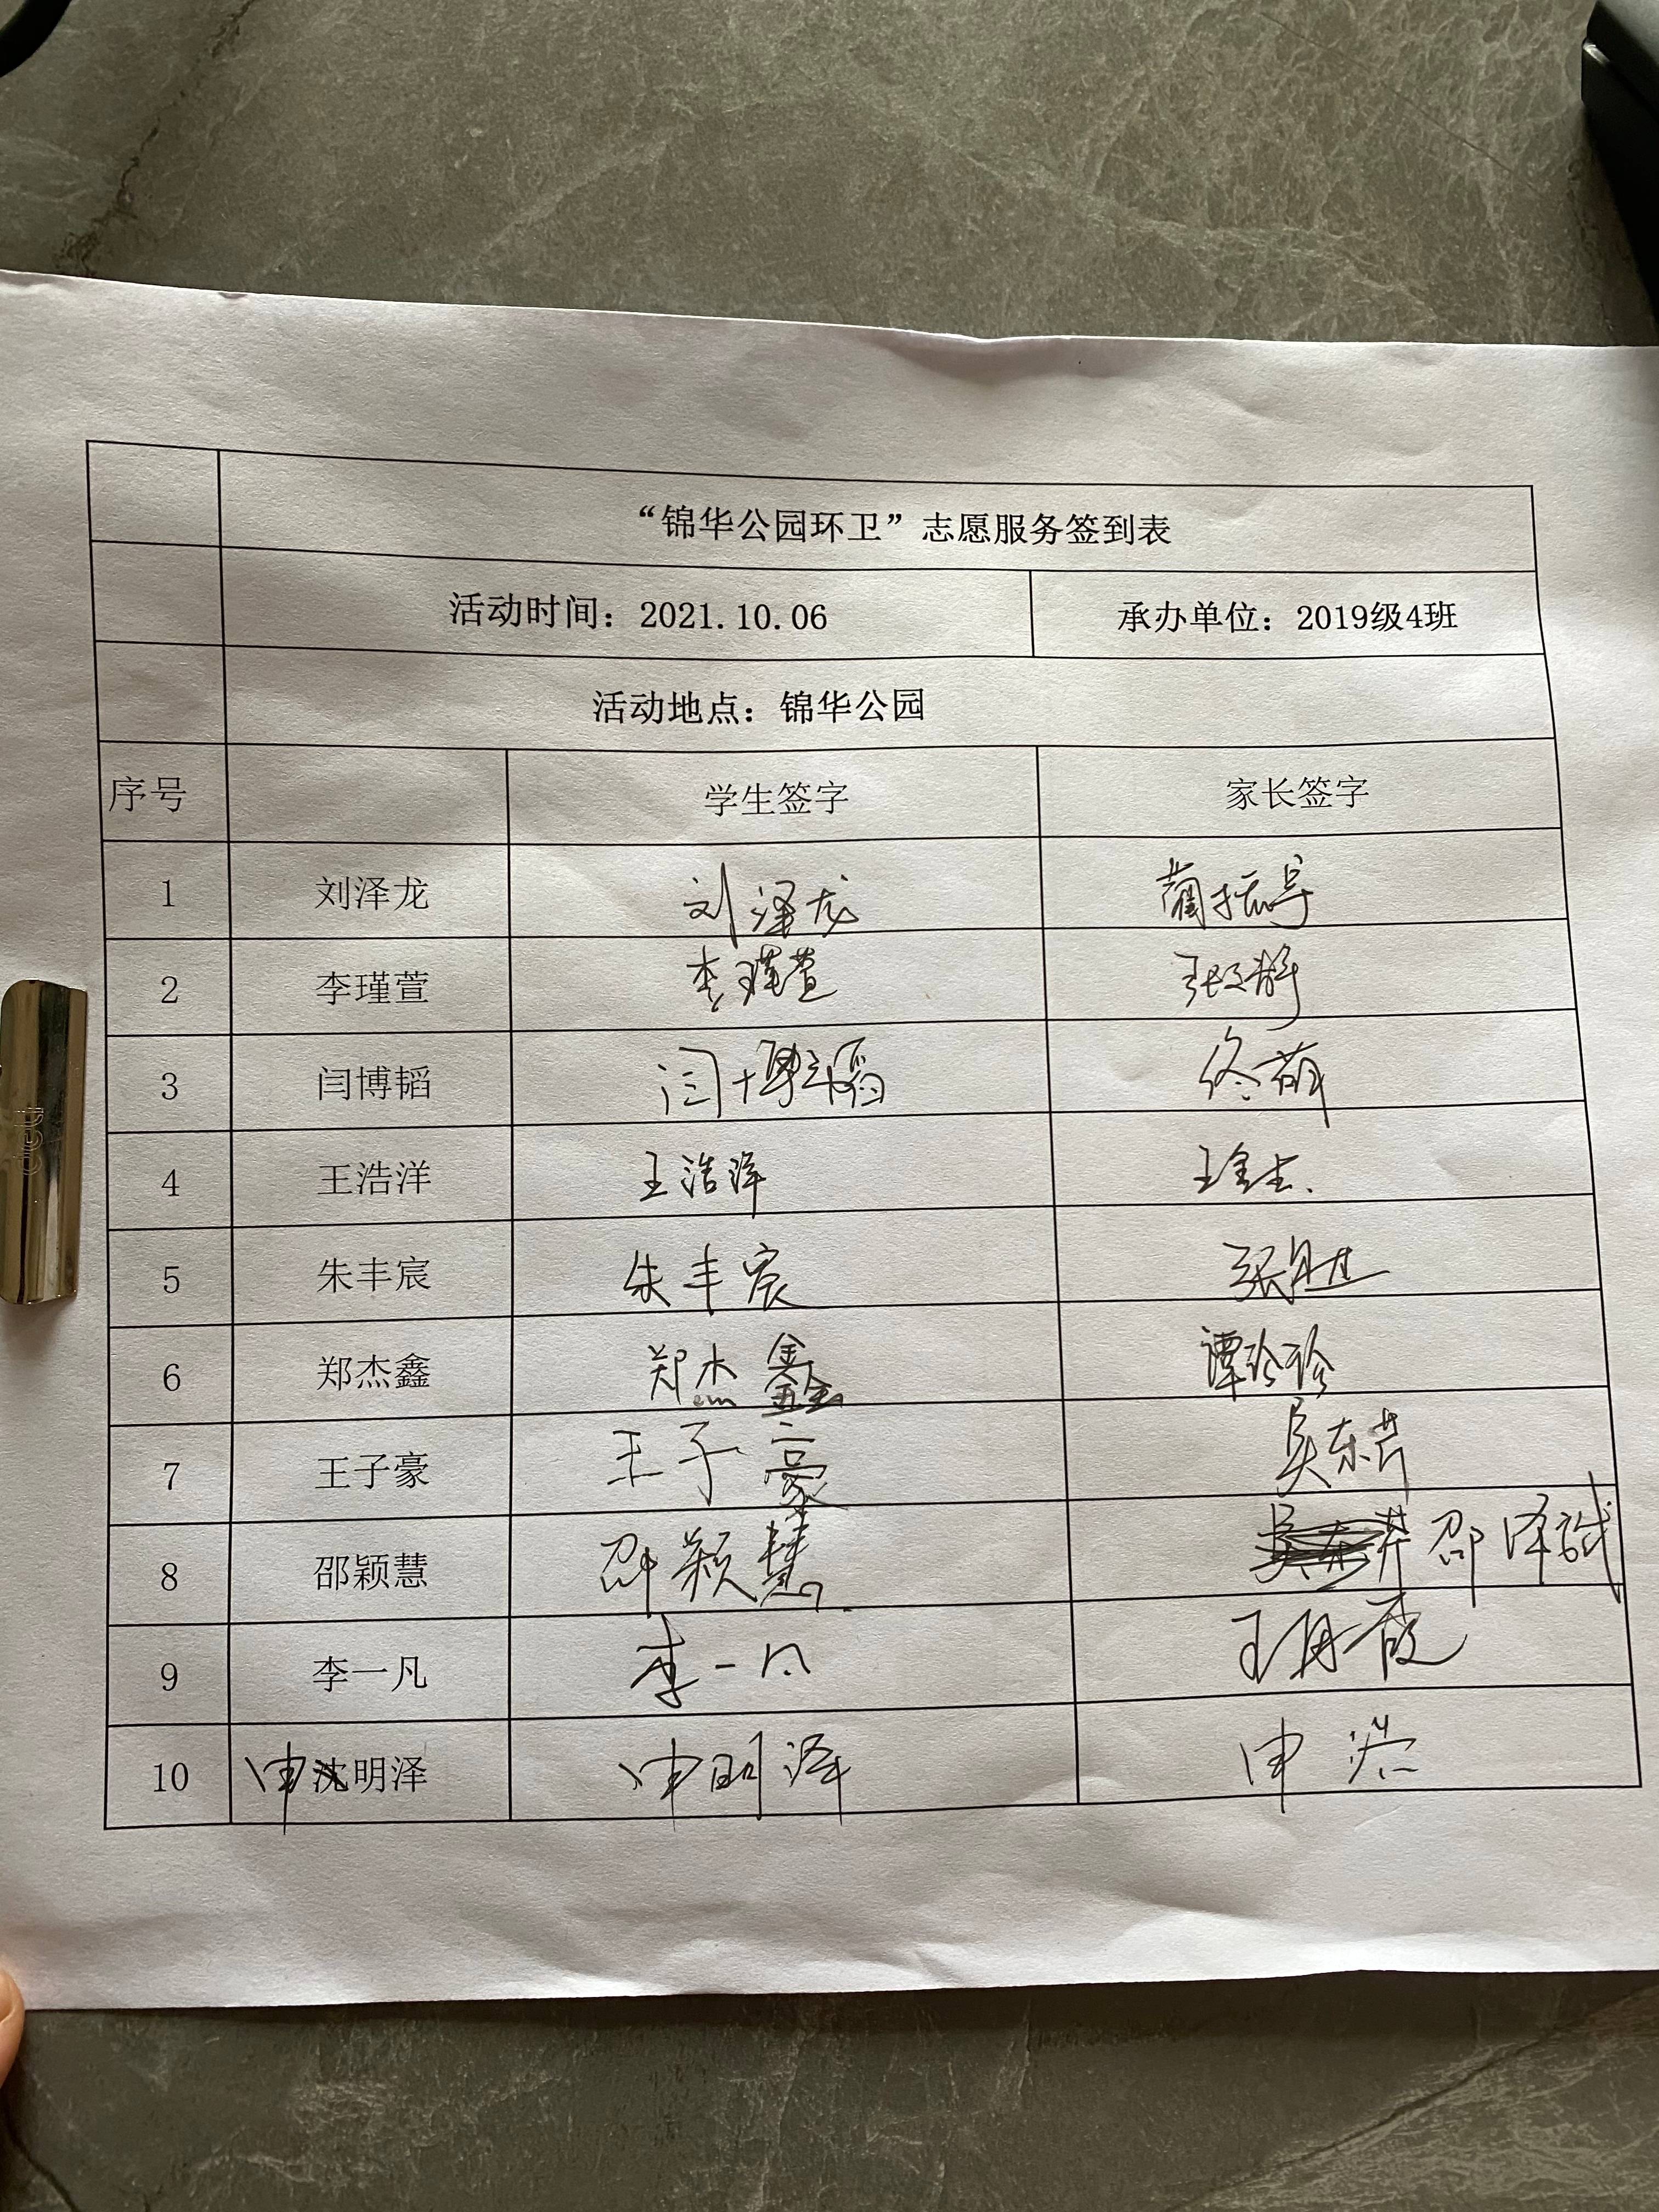 “锦华公园环卫”志愿服务签到表
活动时间：2021.10.06 承办单位：2019级4班
活动地点：锦华公园
序号 学生签字 家长签字
1 刘泽龙 刘泽龙
2 李瑾萱 李瑾萱
3 闫博韬 闫博韬 佟萌
4 王浩洋 王浩洋
5 朱丰宸 朱丰宸
6 郑杰鑫 郑杰鑫 谭珍珍
7 王子豪 王子豪 吴东芹
8 邵颖慧 邵颖慧 邵泽斌
9 李一凡 李一凡 王丹霞
10 申沈明泽 申明泽 申浩
deli